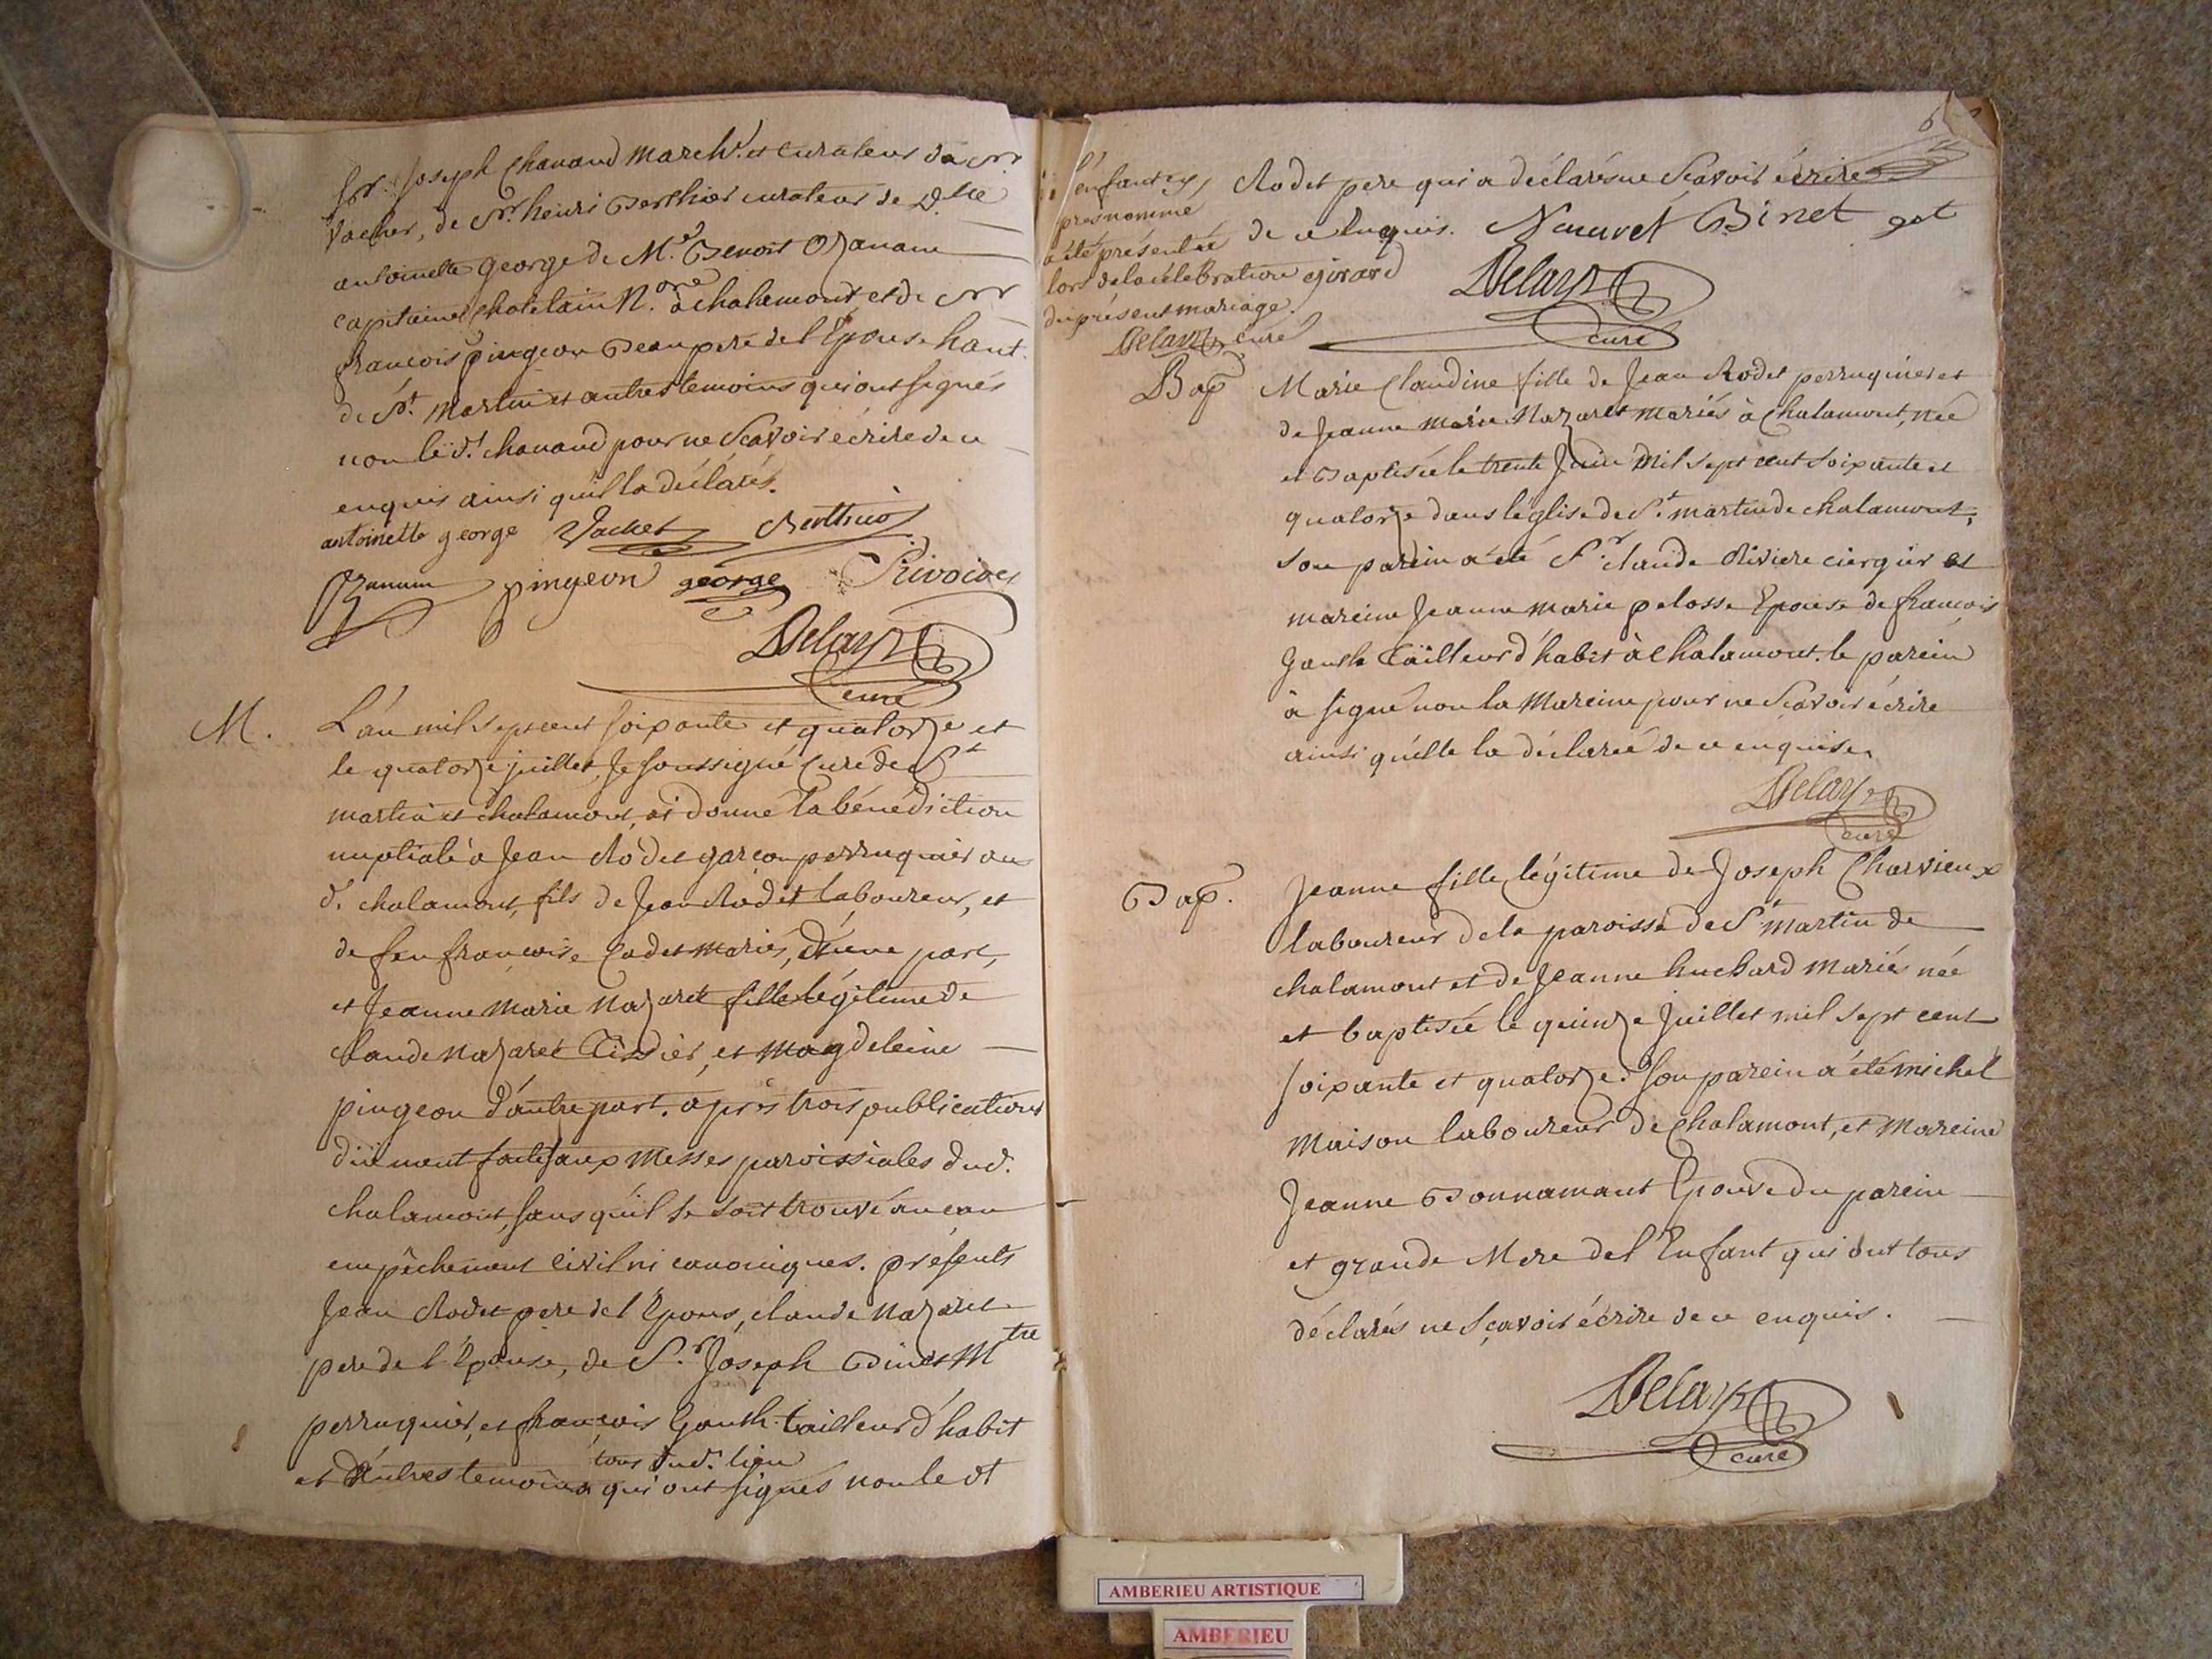 Sr. Joseph Chanand March.d et curateur du Sr
Vacher, de Sr. henri Berthier curateur de D.lle
antoinette george de M.e Benoit Ozanam
capitaine chatelain N.ore à chalamont et de Sr
francois pingeon Beau pere de l'Epouse haut
de St. martin et autres temoins qui ont signés
non le d.t chanand pour ne Scavoir écrire de ce
enquis ainsi qu'il la déclarés.
antoinette george Vacher Berthier
Ozanam pingeon george
Delay
curé
M. L'an mil sept cent soixante et quatorze et
le quatorze juillet, Je soussigné Curé de St
martin et chalamont, ai donné la bénédiction
nuptiale à Jean Rodet garcon perruquier au
d. chalamont, fils de Jean Rodet laboureur, et
de feu francoise Cadet mariés, d'une part,
et Jeanne Marie Nazaret fille légitime de
Claude Nazaret Tissier, et Magdeleine
pingeon d'autre part. après trois publications
düement faites aux Messes paroissiales dud.
chalamont, sans qu'il se soit trouvé aucun
empêchement civil ni canoniques. présents
Jean Rodet pere de l'Epoux, claude Nazaret
pere de l'Epouse, de S.r Joseph Binet Mtre
perruquier, et francois Gouth tailleur d'habit
tous dud. lieu
et d'autres temoins qui ont signés non le dt
6
l'enfant cy
pres nommé
a été présentée
lors de la célébration
du présent mariage.
Delay curé
Rodet pere qui a déclarés ne Scavoir écrire
de ce Enquis. Binet
girard Delay
curé
Bap Marie Claudine fille de Jean Rodet perruquier et
de Jeanne Marie Nazaret mariés à Chalamont, née
et Baptisée le trente Juin Mil sept cent soixante et
quatorze dans l'église de S.t martin de chalamont,
son parein a été S.r claude Riviere ciergier et
mareine Jeanne Marie pelosse Epouse de francois
Gouth Tailleur d'habit à Chalamont. le parein
à signé non la Mareine pour ne Scavoir écrire
ainsi qu'elle la déclarée de ce enquise
Delay
curé
Bap. Jeanne fille légitime de Joseph Charvieux
laboureur de la paroisse de St martin de
chalamont et de Jeanne huchard mariés née
et baptisée le quinze Juillet mil sept cent
soixante et quatorze. Son parein a été michel
Maison laboureur de Chalamont, et Mareine
Jeanne Bonnamant Epouse du parein
et grande Mere de l'Enfant qui ont tous
déclarés ne Sçavoir écrire de ce enquis.
Delay
curé
AMBERIEU ARTISTIQUE
AMBERIEU